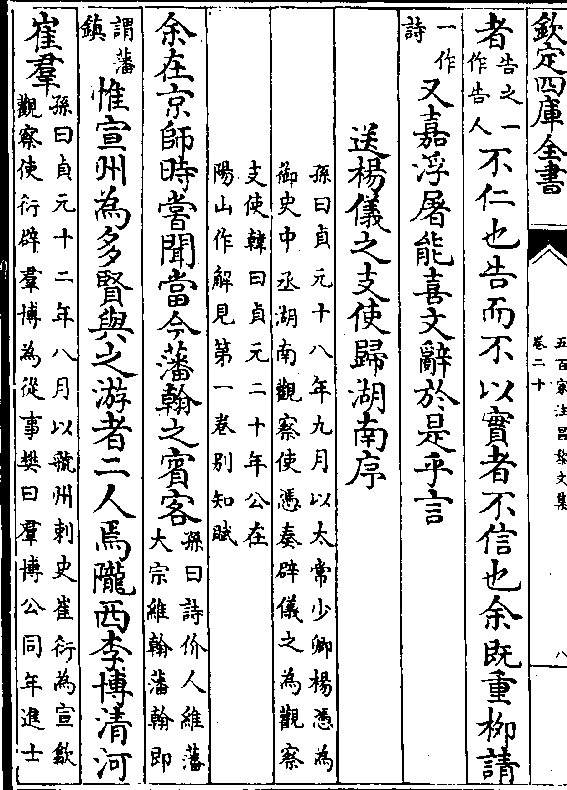 欽定四庫全書
五百家注昌黎文集
卷二十
八
者告之一作告人不仁也告而不以實者不信也余既重柳請
一作詩又嘉浮屠能喜文辭於是乎言
送楊儀之支使歸湖南序
孫曰貞元十八年九月以太常少卿楊憑為
御史中丞湖南觀察使憑奏辟儀之為觀察
支使韓曰貞元二十年公在
陽山作解見第一卷别知賦
余在京師時嘗聞當今藩翰之賓客孫曰詩价人維藩大宗維翰藩翰即
謂藩鎮惟宣州為多賢與之游者二人焉隴西李博清河
崔羣孫曰貞元十二年八月以虢州刺史崔衍為宣歙觀察使衍辟羣博為從事樊曰羣博公同年進士